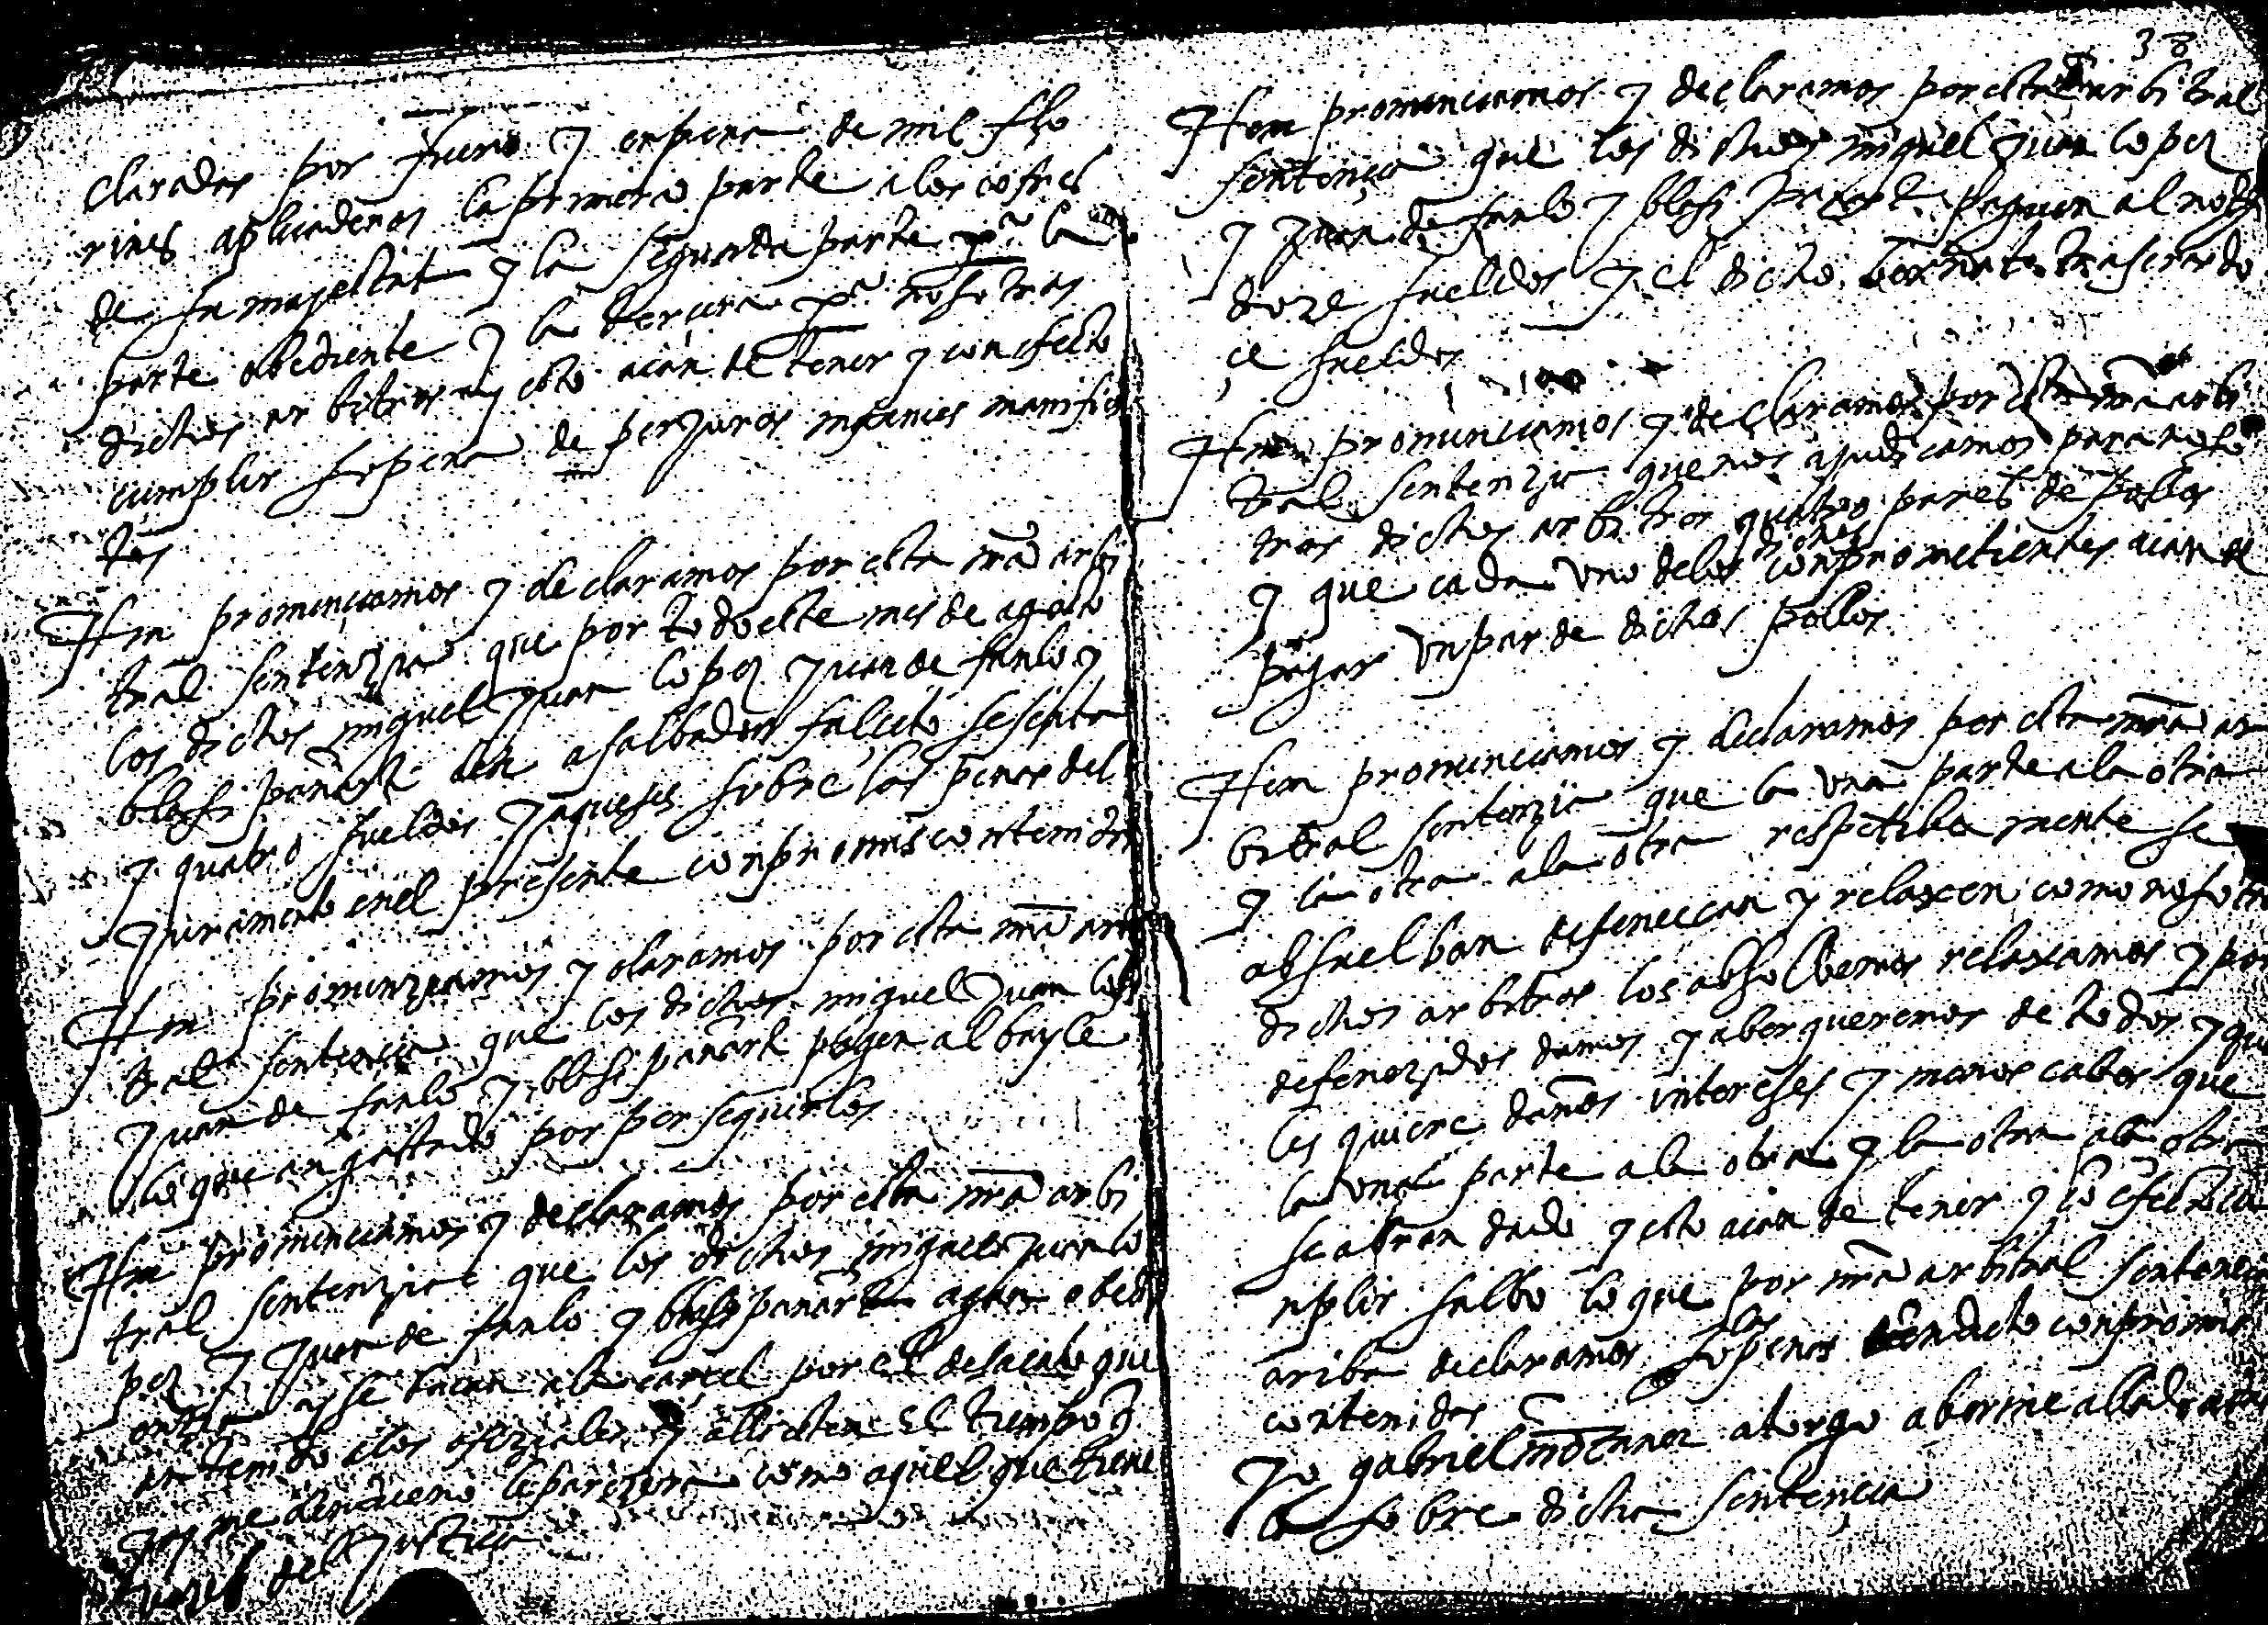 clarados por fuero y en pena de mil flo
rines aplicaderos la primera parte a los cofres
de su magestat y la segunda parte pª la
parte obediente y la tercera pª nosotros
dichos arbitros y esto aian de tener y con efecto
cumplir so pena de perjuros infames manifies
tos
Itm pronunciamos y declaramos por esta nrã arbi
tral sentenzia que por todo este mes de agosto
los dichos miguel juan lopez juan de fanlo y
blasi panart den a salbador salcito sesenta
y quatro sueldos jaqueses sobre las penas del
juramento en el presente conpromis contenidas
Itm pronunziamos y claramos por esta nrã arbi
tral sentencia que los dichos miguel juan lopez
juan de fanlo y blasi panart pagen al bayle
lo que an gastado por perseguirlos
Itm pronunciamos y declaramos por esta nrã arbi
tral sentenzia que los dichos miguel juan lo
pez y juan de fanlo y blasi panart agan obedi
enzia y se bacan a la carcel por el desacato que
an tenido a los ofiziales y alli esten el tiempo q̃
jayme le parezera como aquel que tiene
del justicia
38
Itm pronunciamos y declaramos por esta arbitral
sentencia que los dichos miguel juan lopez
y juan de fanlo y blasi panart paguen al notº
doze sueldos y el dicho
ce sueldos
Itm pronunciamos y declaramos por esta nrã arbi
tral sentenzia que nos ajudicamos para noso
tros dichos arbitros quatro pares de pollos
y que cada uno de los dichos conprometientes aian de
pagar un par de dichos pollos
Itm pronunciamos y declaramos por esta nrã ar
bitral sentenzia que la una parte a la otra
y la otra a la otra respetibamente se
absuelban defenezcan y relaxen como nosotros
dichos arbitros los absolbemos relaxamos y por
defenezidos damos y aber queremos de todos y qua
les quiere daños intereses y menos cabos que
la una parte a la otra y la otra a la otra
se abran dado y esto aian de tener y cõ efecto cu
nplir salbo lo que por nrã arbitral sentencia
ariba declaramos so las penas en dicho conpromis
contenidas
Yo gabriel atorgo aberme allado
sobre dicha sentençia